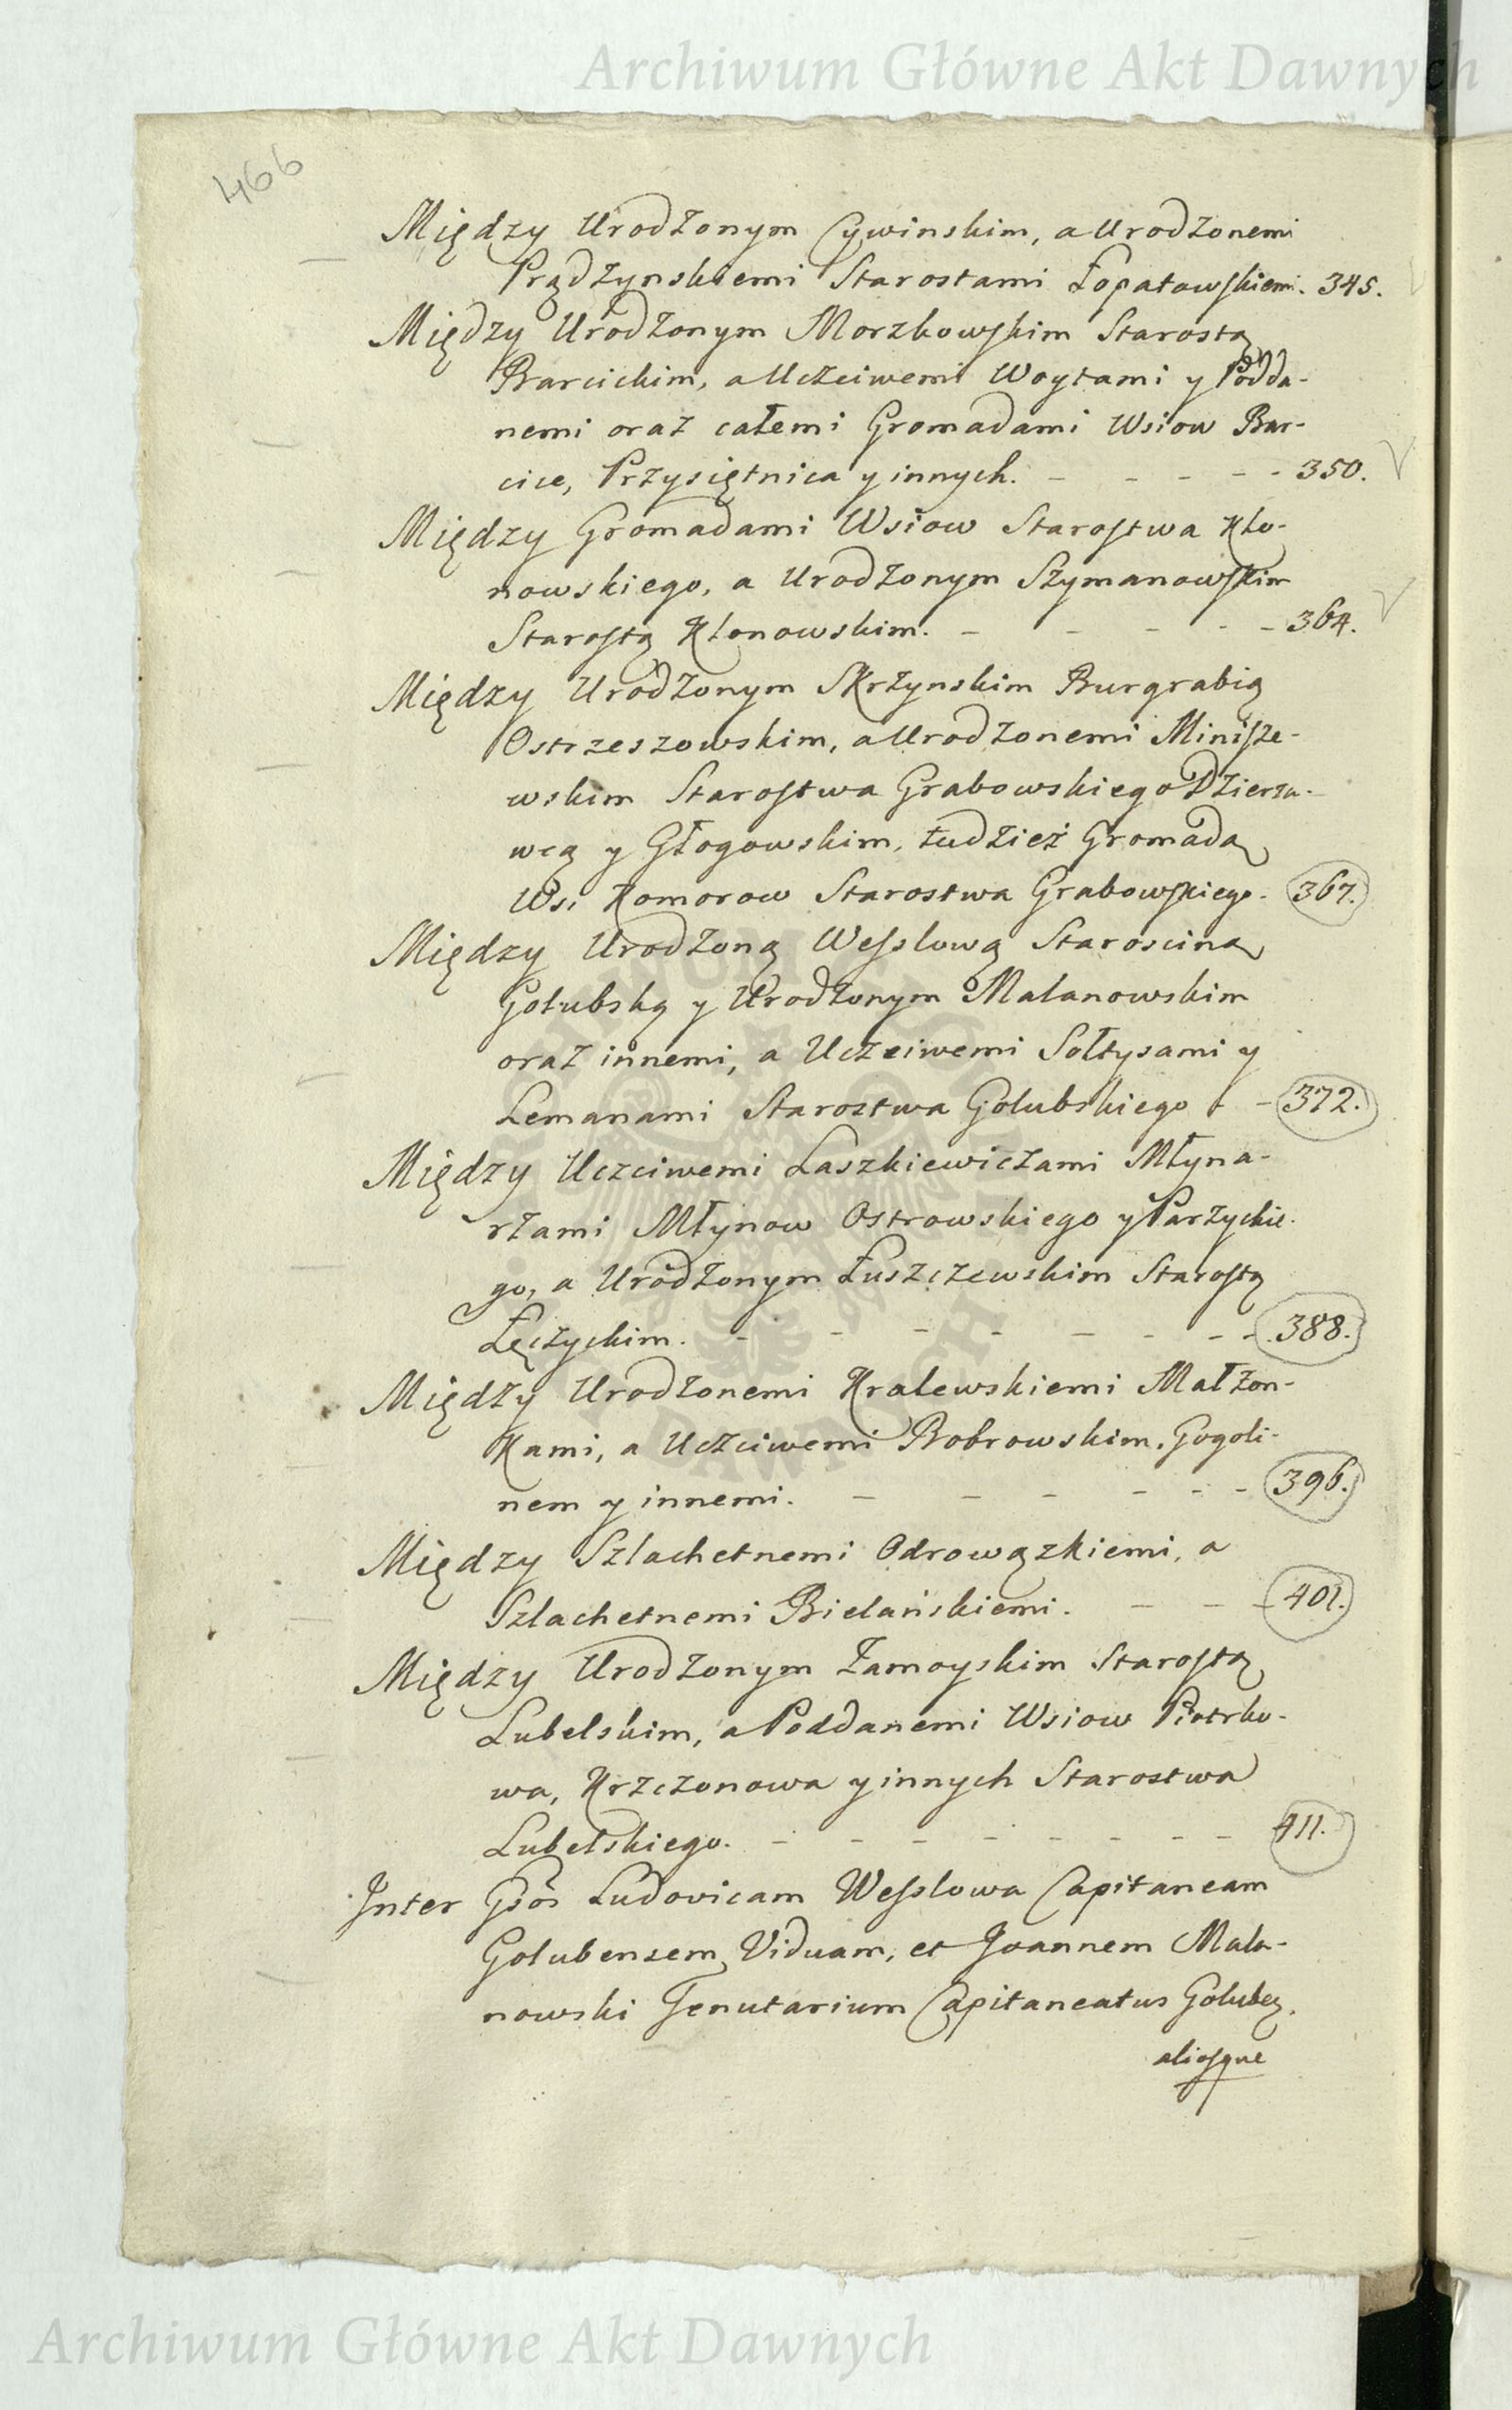 Archiwum Główne Akt Dawnych
466
Między Urodzonym Cywinskim, a Urodzonemi
Prądzynskiemi Starostami Łopatowskiemi. 345.
Między Urodzonym Morzkowskim Starostą
Barcickim, a Uczciwemi Woytami y Podda-
nemi oraz całemi Gromadami Wsiow Bar-
cice, Przysiętnica y innych. - - - - - 350.
Między Gromadami Wsiow Starostwa Kło-
nowskiego, a Urodzonym Szymanowskim
Starostą Kłonowskim. - - - - - 364.
Między Urodzonym Skrzynskim Burgrabią
Ostrzeszowskim, a Urodzonemi Minisze-
wskim Starostwa Grabowskiego Dzierza-
wcą y Głogowskim, tudzież Gromadą
Wsi Komorow Starostwa Grabowskiego. 367.
Między Urodzoną Wesslową Starosciną
Golubską y Urodzonym Malanowskim
oraz innemi, a Uczciwemi Sołtysami y
Lemanami Starostwa Golubskiego - - 372.
Między Uczciwemi Laszkiewiczami Młyna-
rzami Młynow Ostrowskiego y Parzyckie-
go, a Urodzonym Łuszczewskim Starostą
Łęczyckim. - - - - - - - - 388.
Między Urodzonemi Kralewskiemi Małzon-
kami, a Uczciwemi Bobrowskim, Gogoli-
nem y innemi. - - - - - - 396.
Między Szlachetnemi Odrowązkiemi, a
Szlachetnemi Bielańskiemi. - - - 401.
Między Urodzonym Zamoyskim Starostą
Lubelskim, a Poddanemi Wsiow Piotrko-
wa, Krzczonowa y innych Starostwa
Lubelskiego. - - - - - - - - - 411.
Inter Gsos Ludovicam Wesslowa Capitaneam
Golubensem Viduam, et Joannem Mala-
nowski Tenutarium Capitaneatus Golubez.
aliosque
Archiwum Główne Akt Dawnych